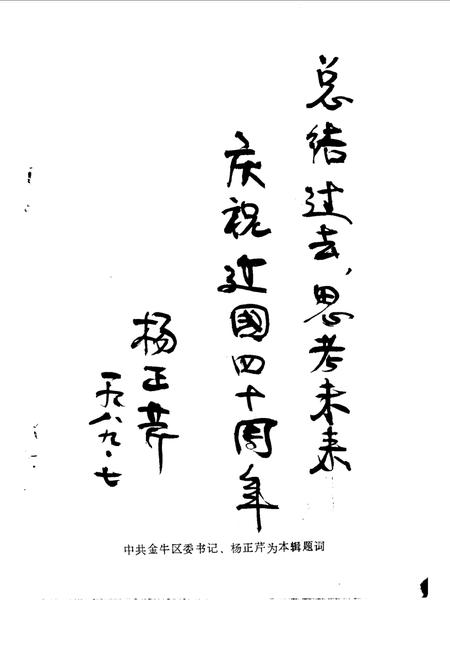 总结过去，思考未来
庆祝建国四十周年
杨正芹
一九八九·七
中共金牛区委书记、杨正芹为本辑题词